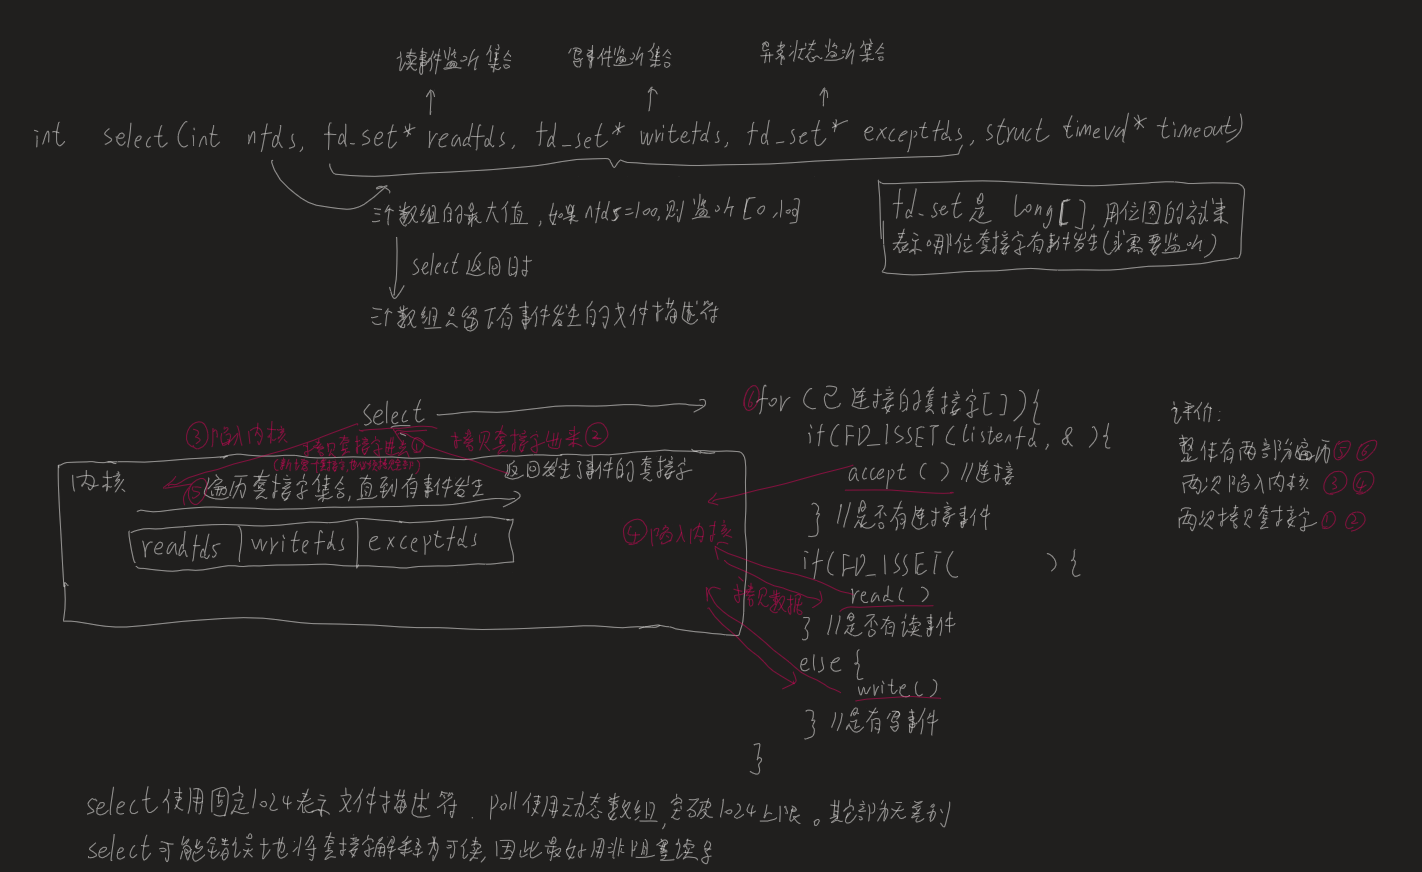 读事件监听集合 写事件监听集合 异常状态监听集合
int select(int nfds, fd_set* readfds, fd_set* writefds, fd_set* exceptfds, struct timeval* timeout)
三个数组的最大值,如果nfds=100,则监听[0,100]
select返回时
三个数组只留下有事件发生的文件描述符
fd_set是 long[],用位图的方式来
表示哪位套接字有事件发生(或需要监听)
select
③陷入内核
拷贝套接字进去①
拷贝套接字出来②
内核
返回发生了事件的套接字
⑤遍历套接字集合,直到有事件发生
readfds writefds exceptfds
④陷入内核
拷贝数据
⑥for (已连接的套接字[]){
if(FD_ISSET(listenfd, & ){
accept() //连接
} //是否有连接事件
if(FD_ISSET( ) {
read()
} //是否有读事件
else {
write()
} //是有写事件
}
评价:
整体有两部分遍历⑤⑥
两次陷入内核 ③④
两次拷贝套接字①②
select使用固定1024表示文件描述符. poll使用动态数组,突破1024上限。其它部分无差别
select可能错误地将套接字解释为可读,因此最好用非阻塞读写